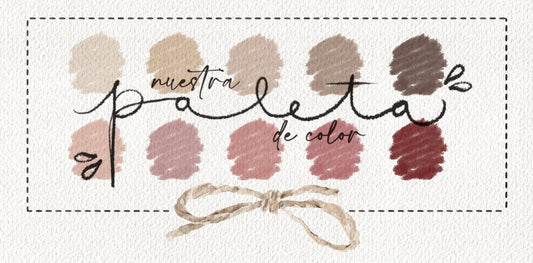 nuestra
paleta
de color